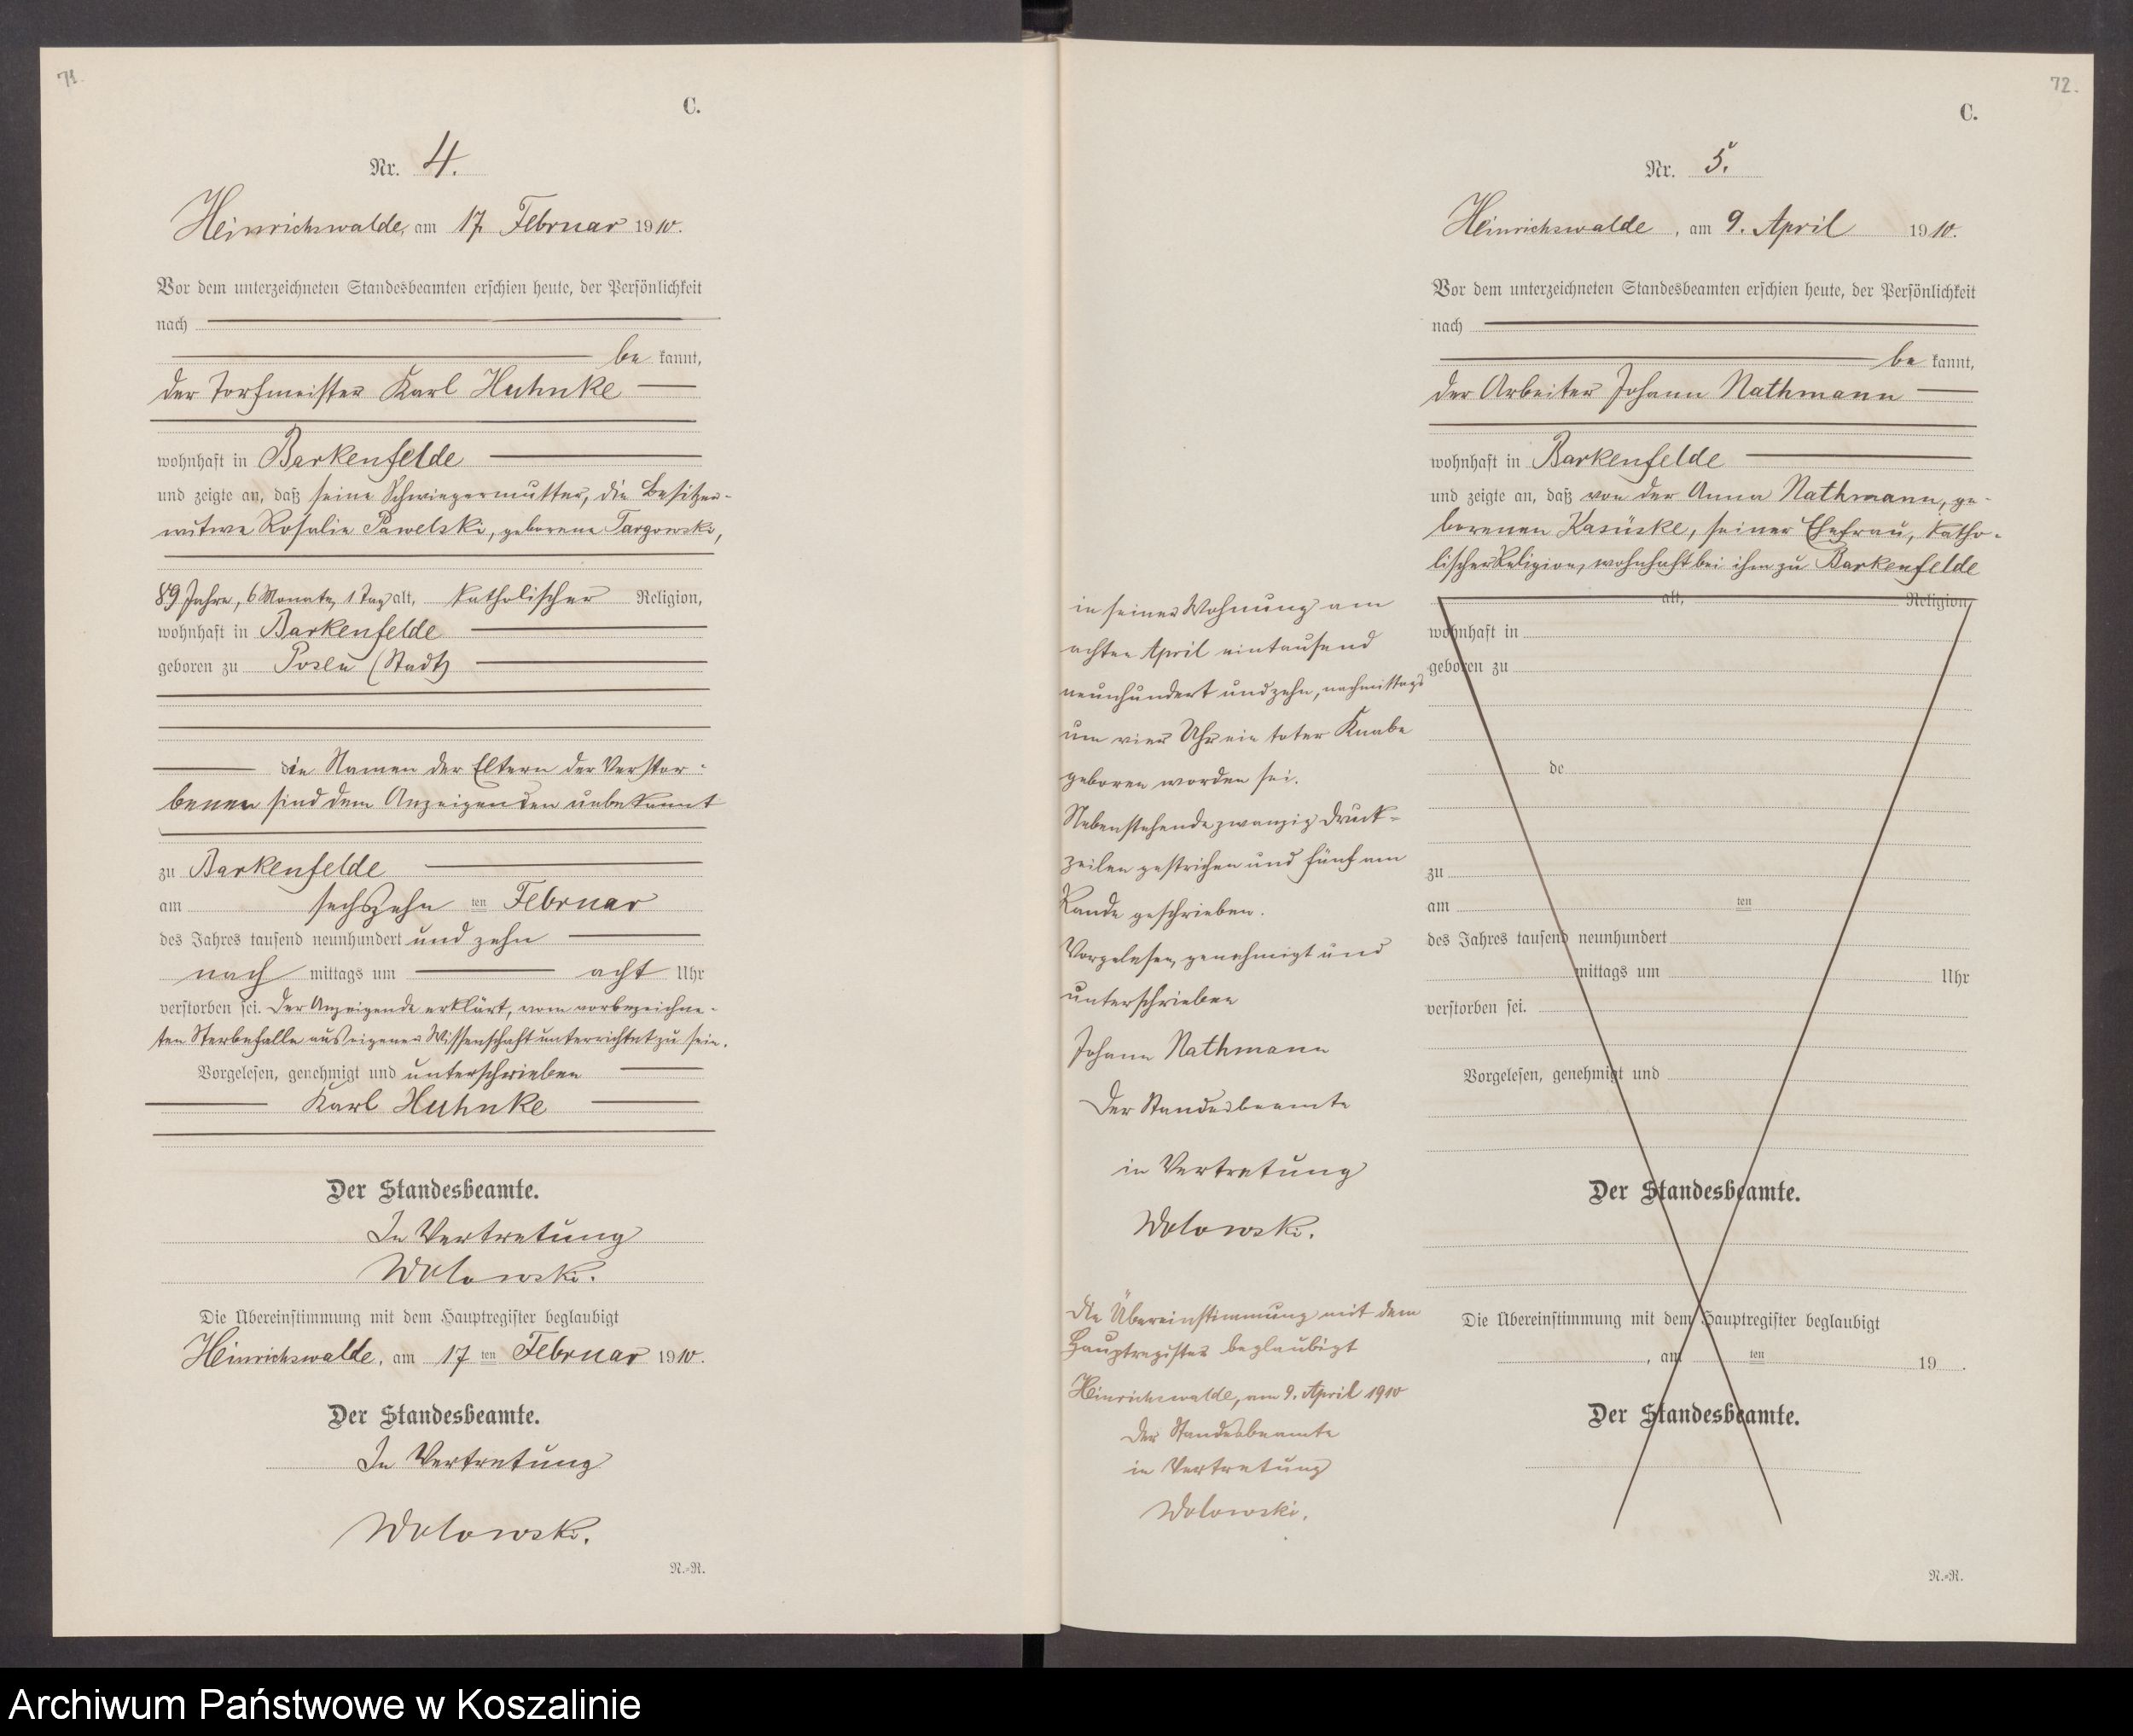 71.
C.
Nr. 4.
Heinrichswalde, am 17. Februar 1910.
Vor dem unterzeichneten Standesbeamten erschien heute, der Persönlichkeit
nach
be kannt,
der Torfmeister Karl Huhnke
wohnhaft in Barkenfelde
und zeigte an, daß seine Schwiegermutter, die Besitzer-
witwe Rosalie Pawelski, geborene Targowski,
89 Jahre, 6 Monate, 1 Tag alt, katholischer Religion,
wohnhaft in Barkenfelde
geboren zu Posen (Stadt)
die Namen der Eltern der Verstor-
benen sind dem Anzeigenden unbekannt
zu Barkenfelde
am sechszehn ten Februar
des Jahres tausend neunhundert und zehn
nach mittags um acht Uhr
verstorben sei. Der Anzeigende erklärt, vom vorbezeichne-
ten Sterbefalle aus eigener Wissenschaft unterrichtet zu sein.
Vorgelesen, genehmigt und unterschrieben
Karl Huhnke
Der Standesbeamte.
In Vertretung
Wolowski.
Die Übereinstimmung mit dem Hauptregister beglaubigt
Heinrichswalde, am 17 ten Februar 1910.
Der Standesbeamte.
In Vertretung
Wolowski.
N.=R.
72.
C.
Nr. 5.
Heinrichswalde, am 9. April 1910.
Vor dem unterzeichneten Standesbeamten erschien heute, der Persönlichkeit
nach
be kannt,
der Arbeiter Johann Nathmann
wohnhaft in Barkenfelde
und zeigte an, daß von der Anna Nathmann, ge-
borenen Kasüske, seiner Ehefrau, katho-
lischer Religion, wohnhaft bei ihm zu Barkenfelde
in seiner Wohnung am
achten April eintausend
neunhundert und zehn, nachmittags
um vier Uhr ein toter Knabe
geboren worden sei.
Nebenstehende zwanzig Druck-
zeilen gestrichen und fünf am
Rande geschrieben.
Vorgelesen, genehmigt und
unterschrieben
Johann Nathmann
Der Standesbeamte
in Vertretung
Wolowski.
Die Übereinstimmung mit dem
Hauptregister beglaubigt
Heinrichswalde, am 9. April 1910
Der Standesbeamte
in Vertretung
Wolowski.
alt, Religion,
wohnhaft in
geboren zu
de
zu
am ten
des Jahres tausend neunhundert
mittags um Uhr
verstorben sei.
Vorgelesen, genehmigt und
Der Standesbeamte.
Die Übereinstimmung mit dem Hauptregister beglaubigt
, am ten 19 .
Der Standesbeamte.
N.=R.
Archiwum Państwowe w Koszalinie